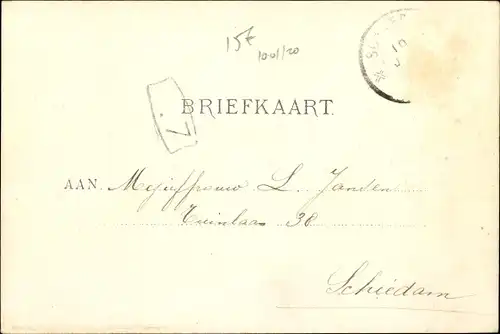 15E
10-01/20
BRIEFKAART.
AAN. Mejuffrouw L. Jansen
Tuinlaan 38
Schiedam